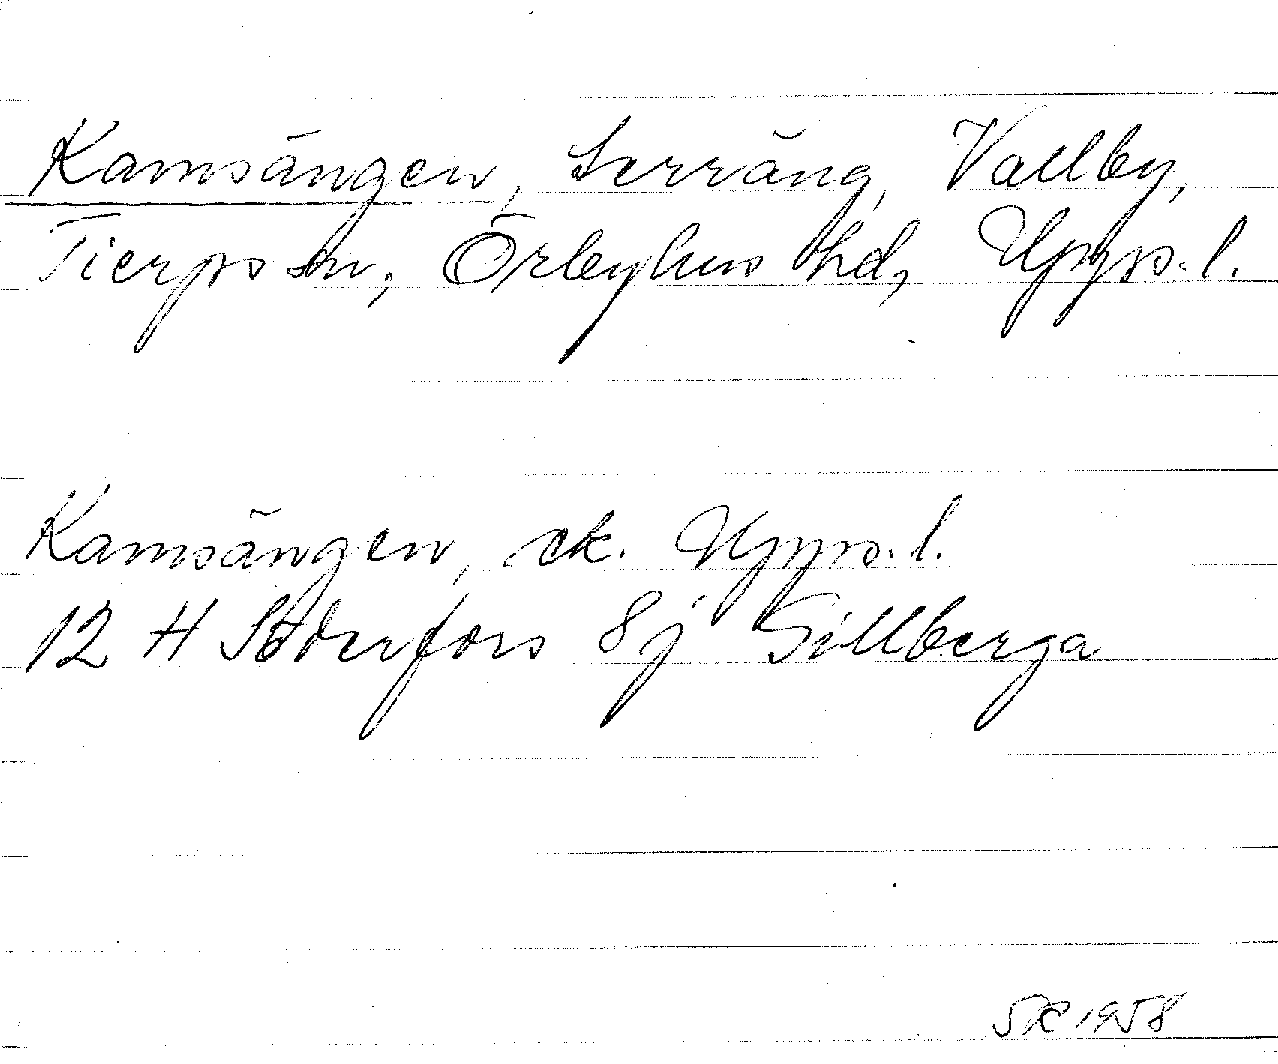 Kamsängen, terräng, Vallby,
Tierps sn, Örbyhus hd, Upps. l.
Kamsängen, ek. Upps. l.
12 H Söderfors 8j Gillberga
SK 1958